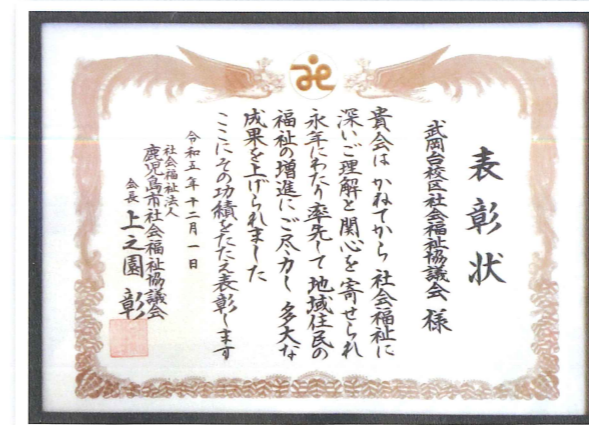 表彰状
武岡台校区社会福祉協議会 様
貴会は かねてから 社会福祉に
深いご理解と関心を寄せられ
永年にわたり 率先して 地域住民の
福祉の増進に ご尽力し 多大な
成果を上げられました
ここにその功績をたたえ表彰します
令和五年十二月一日
社会福祉法人
鹿児島市社会福祉協議会
会長 上之園 彰